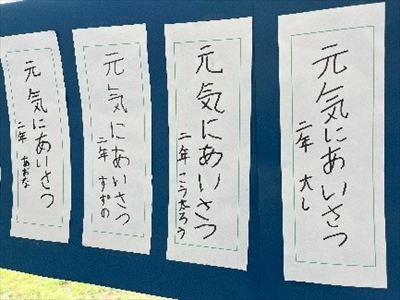 元気にあいさつ
二年 大し
元気にあいさつ
二年 こう太ろう
元気にあいさつ
二年 すずの
元気にあいさつ
二年 あおな